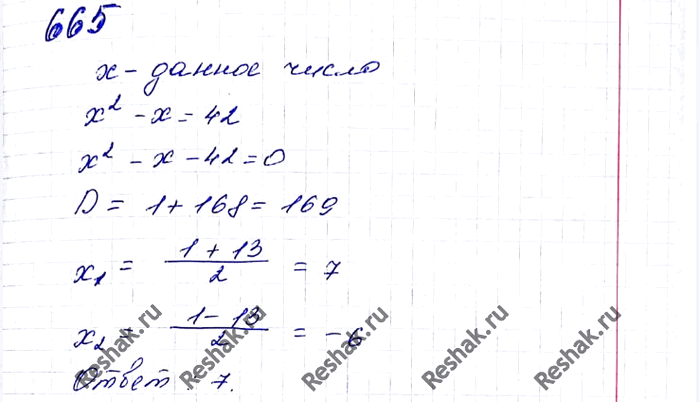 665
x - данное число
x² - x = 42
x² - x - 42 = 0
D = 1 + 168 = 169
x₁ = (1 + 13)/2 = 7
x₂ = (1 - 13)/2 = -6
Ответ: 7.
Reshak.ru Reshak.ru Reshak.ru Reshak.ru Reshak.ru